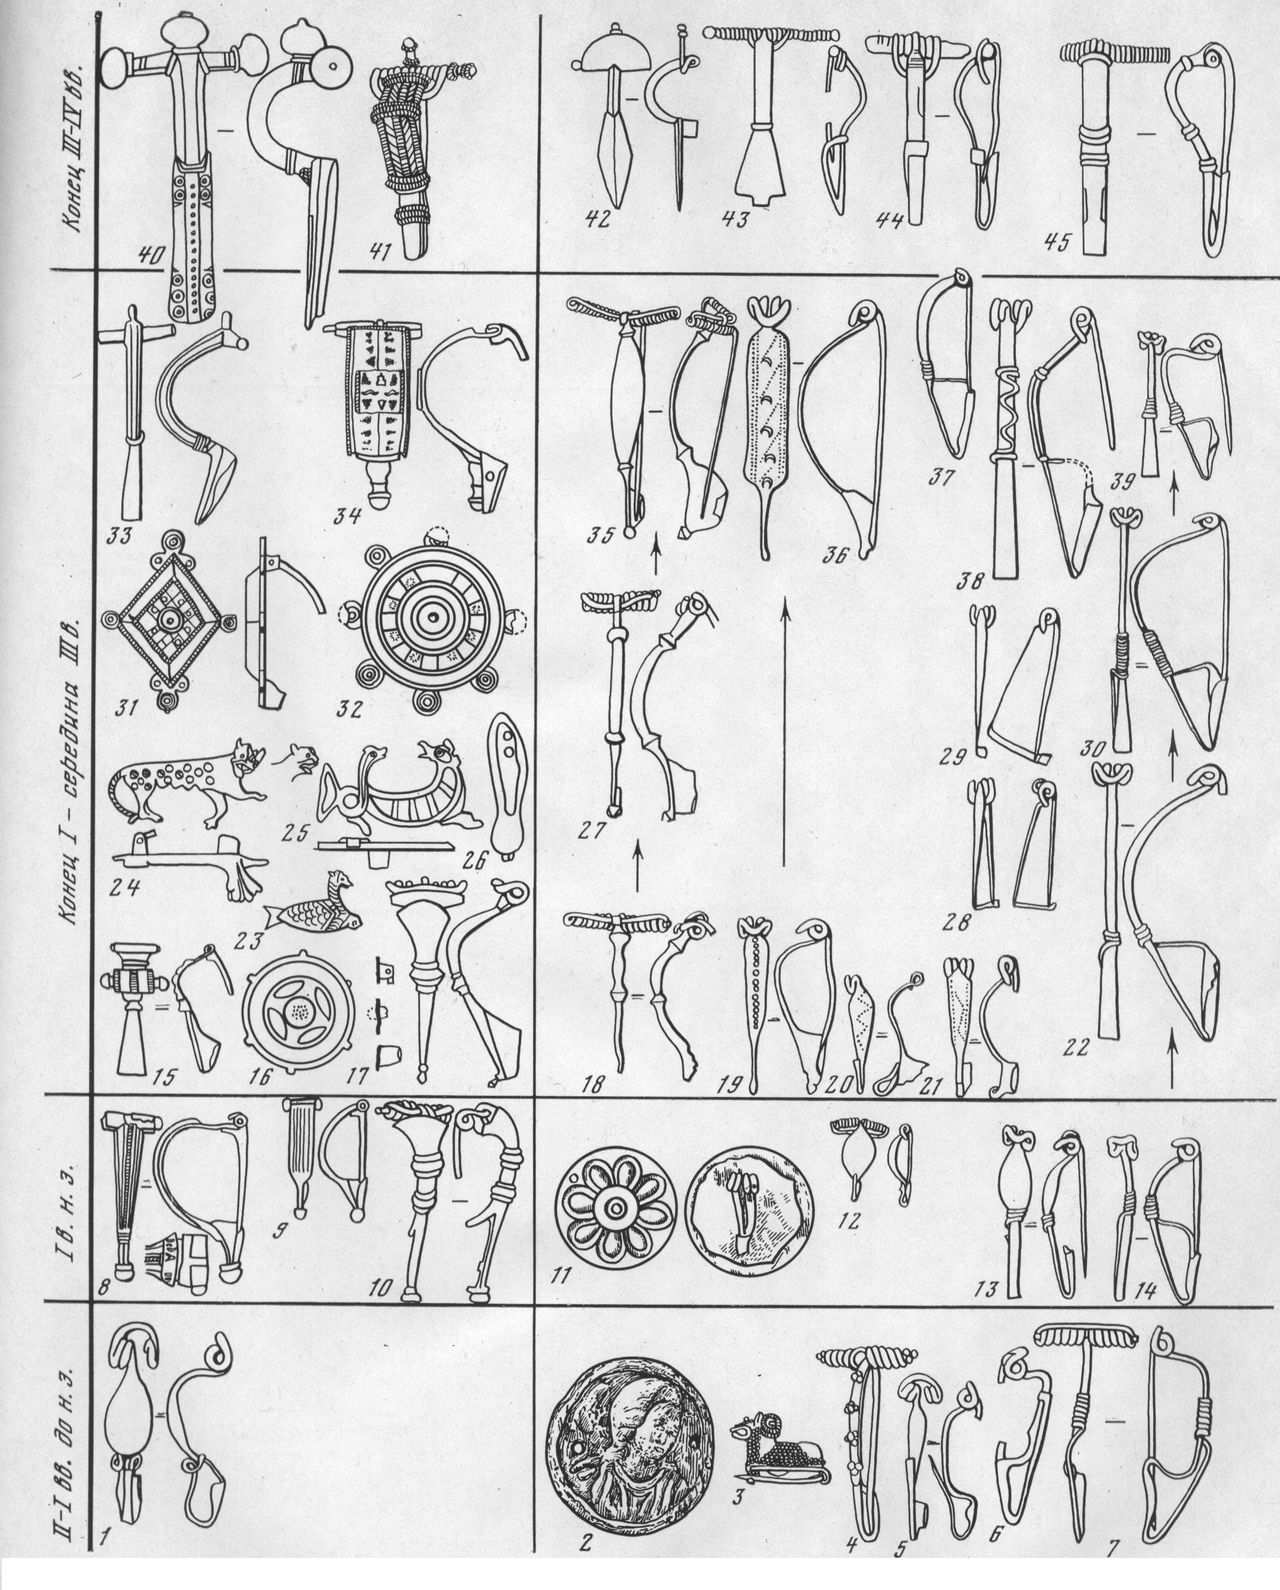 Конец III-IV вв.
40
41
42
43
44
45
Конец I - середина III в.
33
34
35
36
37
38
39
31
32
27
29
30
24
25
26
28
23
22
15
16
17
18
19
20
21
I в. н. э.
8
9
10
11
12
13
14
II-I вв. до н. э.
1
2
3
4
5
6
7